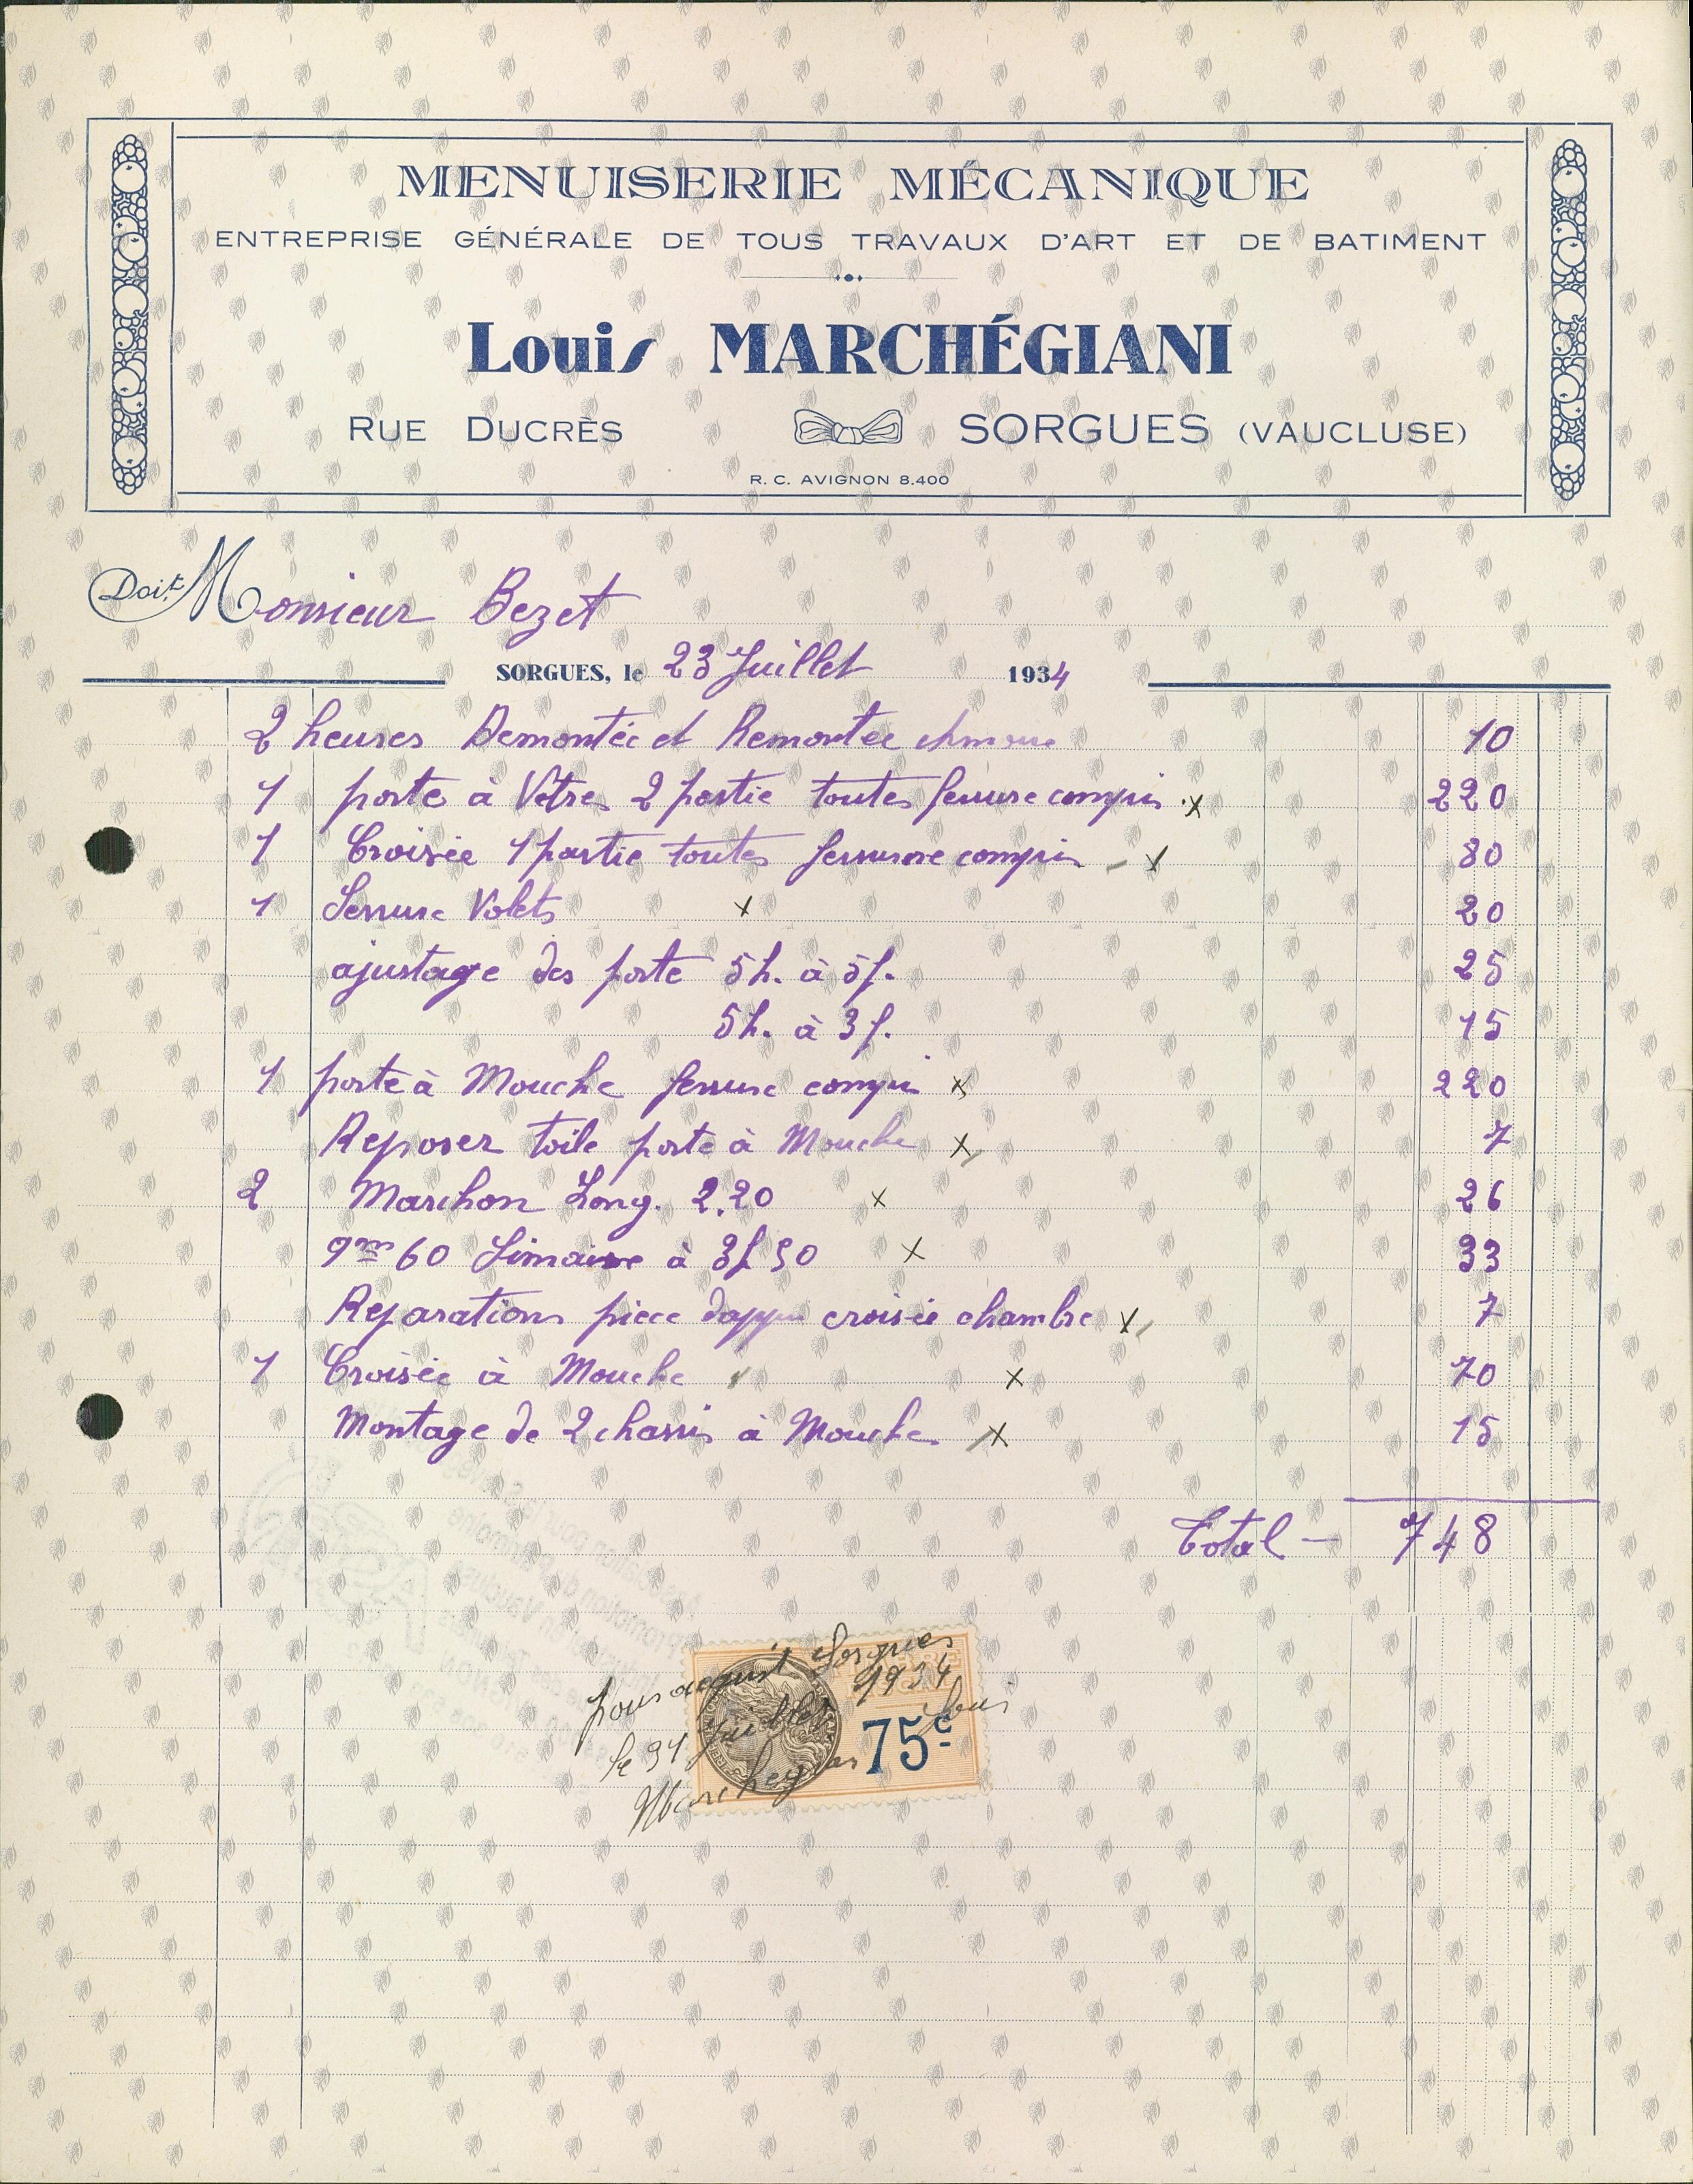 MENUISERIE MÉCANIQUE
ENTREPRISE GÉNÉRALE DE TOUS TRAVAUX D'ART ET DE BATIMENT
Louis MARCHÉGIANI
RUE DUCRÈS SORGUES (VAUCLUSE)
R. C. AVIGNON 8.400
Doit Monsieur Bezet
SORGUES, le 23 Juillet 1934
2 heures Demontée et Remontée 10
1 porte à Vitres 2 partie toutes ferrure compris x 220
1 Croisée 1 partie toutes ferrure compris x 80
1 Serrure Volets x 20
ajustage des porte 5h. à 5f. 25
5h. à 3f. 15
1 porte à Mouche ferrure compri x 220
Reposer toile porte à Mouche x 7
2 Marchon Long. 2.20 x 26
9m 60 à 3f50 x 33
Reparations piece dappui croisée chambre x 7
1 Croisée à Mouche x 70
Montage de 2 chassis à Mouche x 15
Total - 748
pour acquit Sorgues
le 31 Juillet 1934
Louis
75c